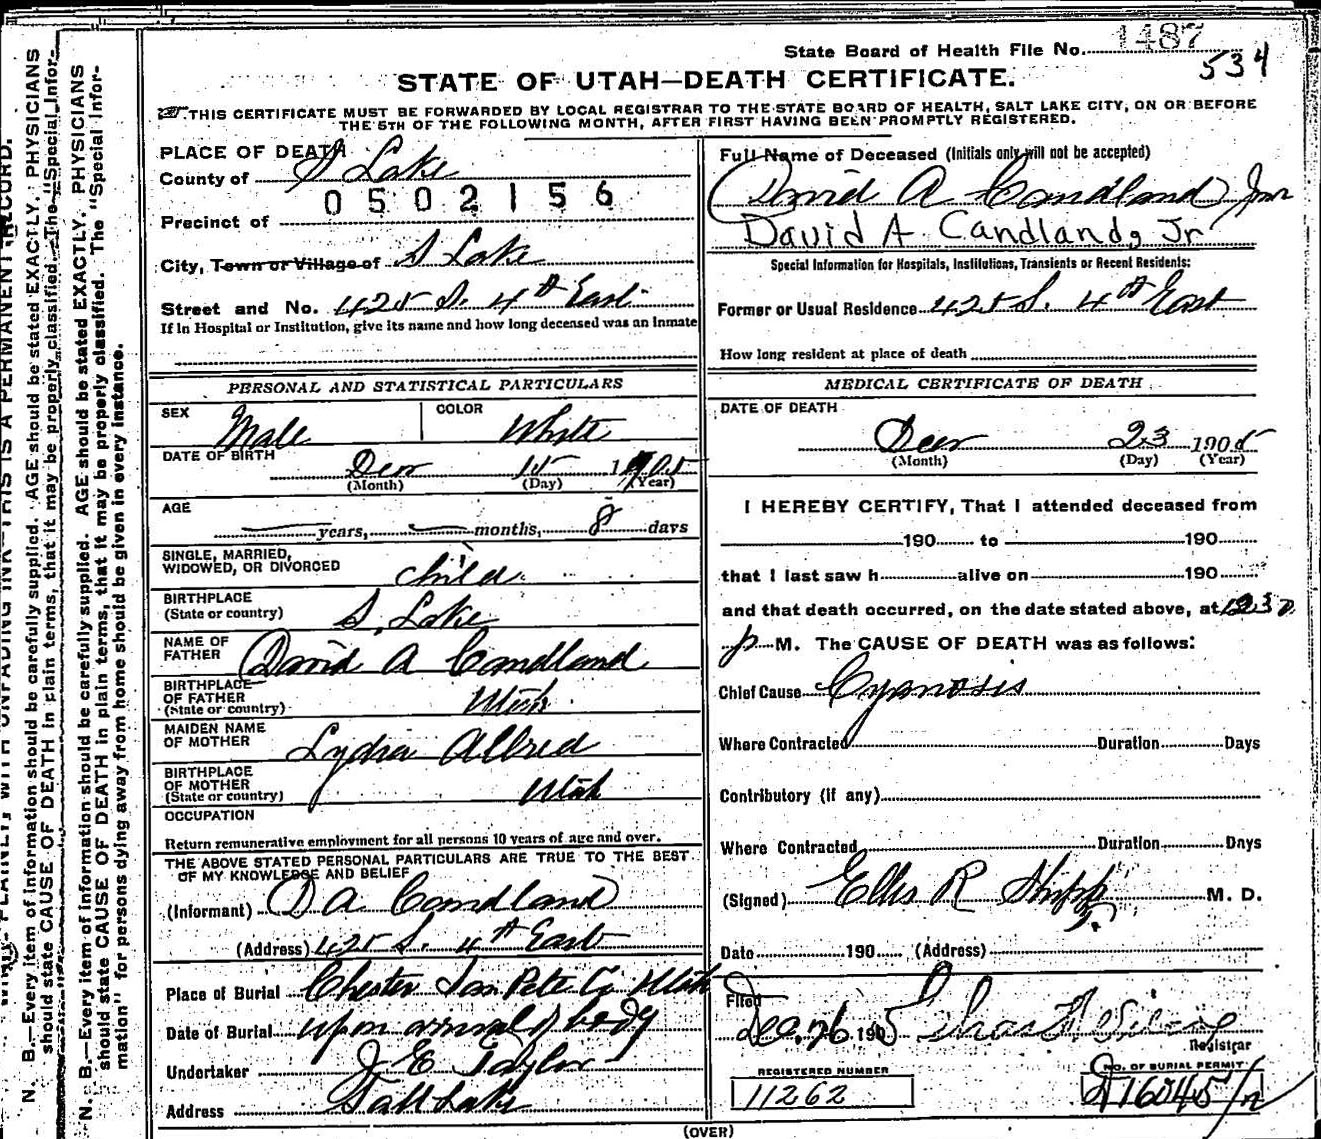 State Board of Health File No. 1487
534
STATE OF UTAH—DEATH CERTIFICATE.
THIS CERTIFICATE MUST BE FORWARDED BY LOCAL REGISTRAR TO THE STATE BOARD OF HEALTH, SALT LAKE CITY, ON OR BEFORE
THE 5TH OF THE FOLLOWING MONTH, AFTER FIRST HAVING BEEN PROMPTLY REGISTERED.
PLACE OF DEATH
County of S Lake
0502156
Precinct of
City, Town or Village of S Lake
Street and No. 425 S. 4th East
If in Hospital or Institution, give its name and how long deceased was an Inmate
Full Name of Deceased (Initials only will not be accepted)
David A Candland Jnr
David A. Candland, Jr
Special Information for Hospitals, Institutions, Transients or Recent Residents:
Former or Usual Residence 425 S. 4th East
How long resident at place of death
PERSONAL AND STATISTICAL PARTICULARS
SEX Male
COLOR White
DATE OF BIRTH Decr 15 1905
(Month) (Day) (Year)
AGE
years, months, 8 days
SINGLE, MARRIED,
WIDOWED, OR DIVORCED child
BIRTHPLACE
(State or country) S. Lake
NAME OF
FATHER David A Candland
BIRTHPLACE
OF FATHER
(State or country) Utah
MAIDEN NAME
OF MOTHER Lydia Allred
BIRTHPLACE
OF MOTHER
(State or country) Utah
OCCUPATION
Return remunerative employment for all persons 10 years of age and over.
THE ABOVE STATED PERSONAL PARTICULARS ARE TRUE TO THE BEST
OF MY KNOWLEDGE AND BELIEF
(Informant) D A Candland
(Address) 425 S. 4th East
Place of Burial Chester San Pete Co Utah
Date of Burial upon arrival of body
Undertaker J E Taylor
Address Salt Lake
MEDICAL CERTIFICATE OF DEATH
DATE OF DEATH
Decr 23 1905
(Month) (Day) (Year)
I HEREBY CERTIFY, That I attended deceased from
190 to 190
that I last saw h alive on 190
and that death occurred, on the date stated above, at 1230
p M. The CAUSE OF DEATH was as follows:
Chief Cause Cyanosis
Where Contracted Duration Days
Contributory (if any)
Where Contracted Duration Days
(Signed) Ellis R Shipp M. D.
Date 190 (Address)
Filed
Dec 26 1905 Chas
Registrar
REGISTERED NUMBER
11262
NO. OF BURIAL PERMIT
(OVER)
N. B.—Every item of information should be carefully supplied. AGE should be stated EXACTLY. PHYSICIANS
should state CAUSE OF DEATH in plain terms, that it may be properly classified. The "Special Infor-
N. B.—Every item of information should be carefully supplied. AGE should be stated EXACTLY. PHYSICIANS
should state CAUSE OF DEATH in plain terms, that it may be properly classified. The "Special Infor-
mation" for persons dying away from home should be given in every instance.